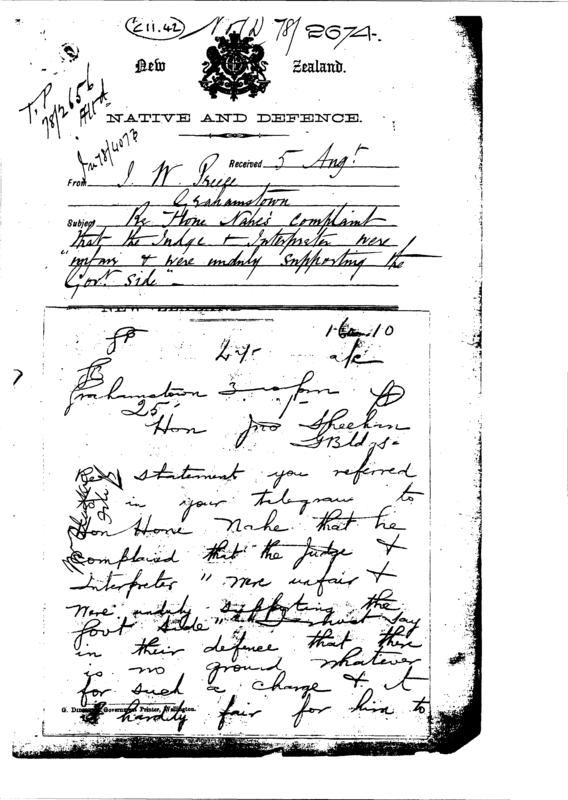 C11.42
N & D 78/2674.
New Zealand.
T.P
78/2656
NATIVE AND DEFENCE.
Received 5 Augt
From J. W. Preece
Grahamstown
Subject Re Hone Nahe's complaint
that the Judge & Interpreter were
"unfair & were unduly supporting the
Govt. side"
NEW ZEALAND
10
Grahamstown 3 pm
25
Hon Jno Sheehan
G Bldgs
Re statement you referred
in your telegram to
Hon Hone Nahe that he
complained that the Judge &
Interpreter "were unfair &
were unduly supporting the
Govt side" I must say
in their defence that there
is no ground whatever
for such a charge & it
is hardly fair for him to
Government Printer, Wellington.